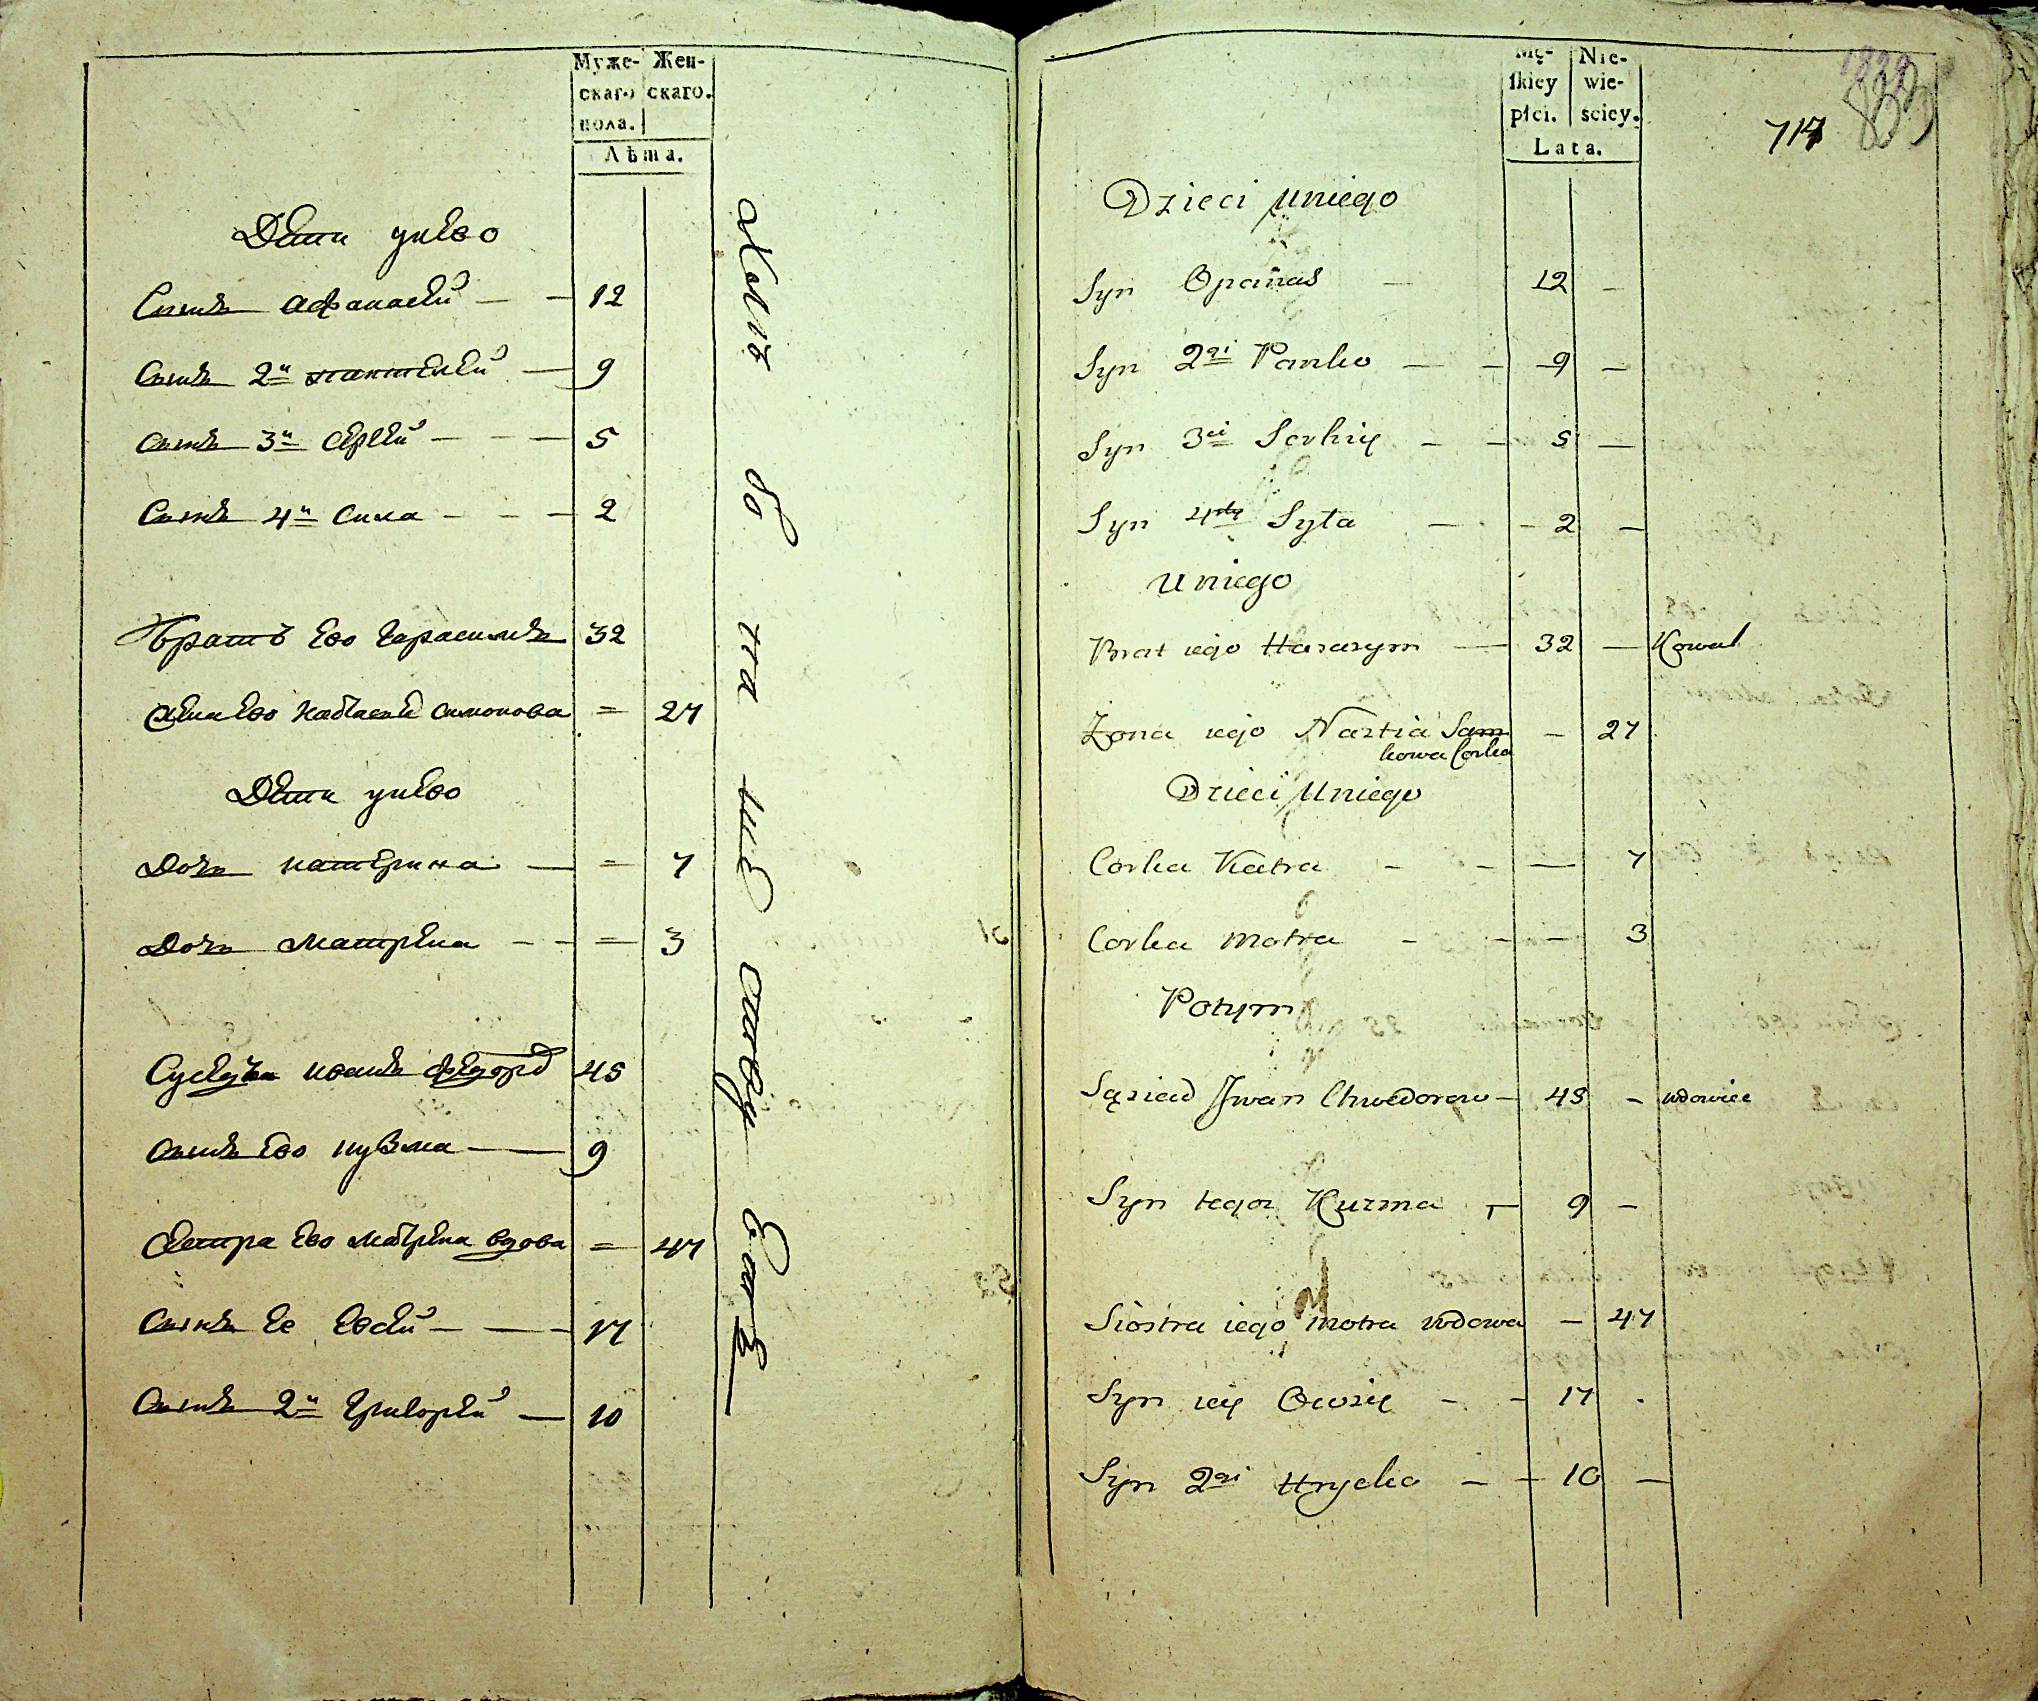 Муже- Жен-
скаго скаго.
пола.
Лѣта.
Дети унево
Сынъ Афанасей — — 12
Сынъ 2й пантелей — 9
сынъ 3й сергей — — — 5
Сынъ 4й сила — — — 2
Братъ ево Герасимъ 32
Жена ево настасья симонова = 27
Дети унево
Дочь катерина — = 7
Дочь матрена — — = 3
Суседъ иванъ федоров 45
сынъ ево кузма — 9
Сестра ево матрена вдова = 47
Сынъ ее евсей — — — 17
Сынъ 2й григорей — 10
Mę- Nie-
skiey wie-
płci. sciey.
Lata.
714
833
Dzieci uniego
Syn Opanas — 12 —
Syn 2gi Panko — — 9 —
Syn 3ci Serhiy — — 5 —
Syn 4ty Syła — — 2 —
Uniego
Brat iego Harasym — 32 — Kowal
Żona iego Nastia Sam — 27
kowa Corka
Dzieci Uniego
Corka Katra — — — 7
Corka Motra — — — 3
Potym
Sąsiad Jwan Chwedorow — 45 — wdowiec
Syn tegoz Kuzma — 9 —
Siostra iego Motra wdowa — 47
Syn iey Owsiy — — 17 .
Syn 2gi Hrycko — — 10 —